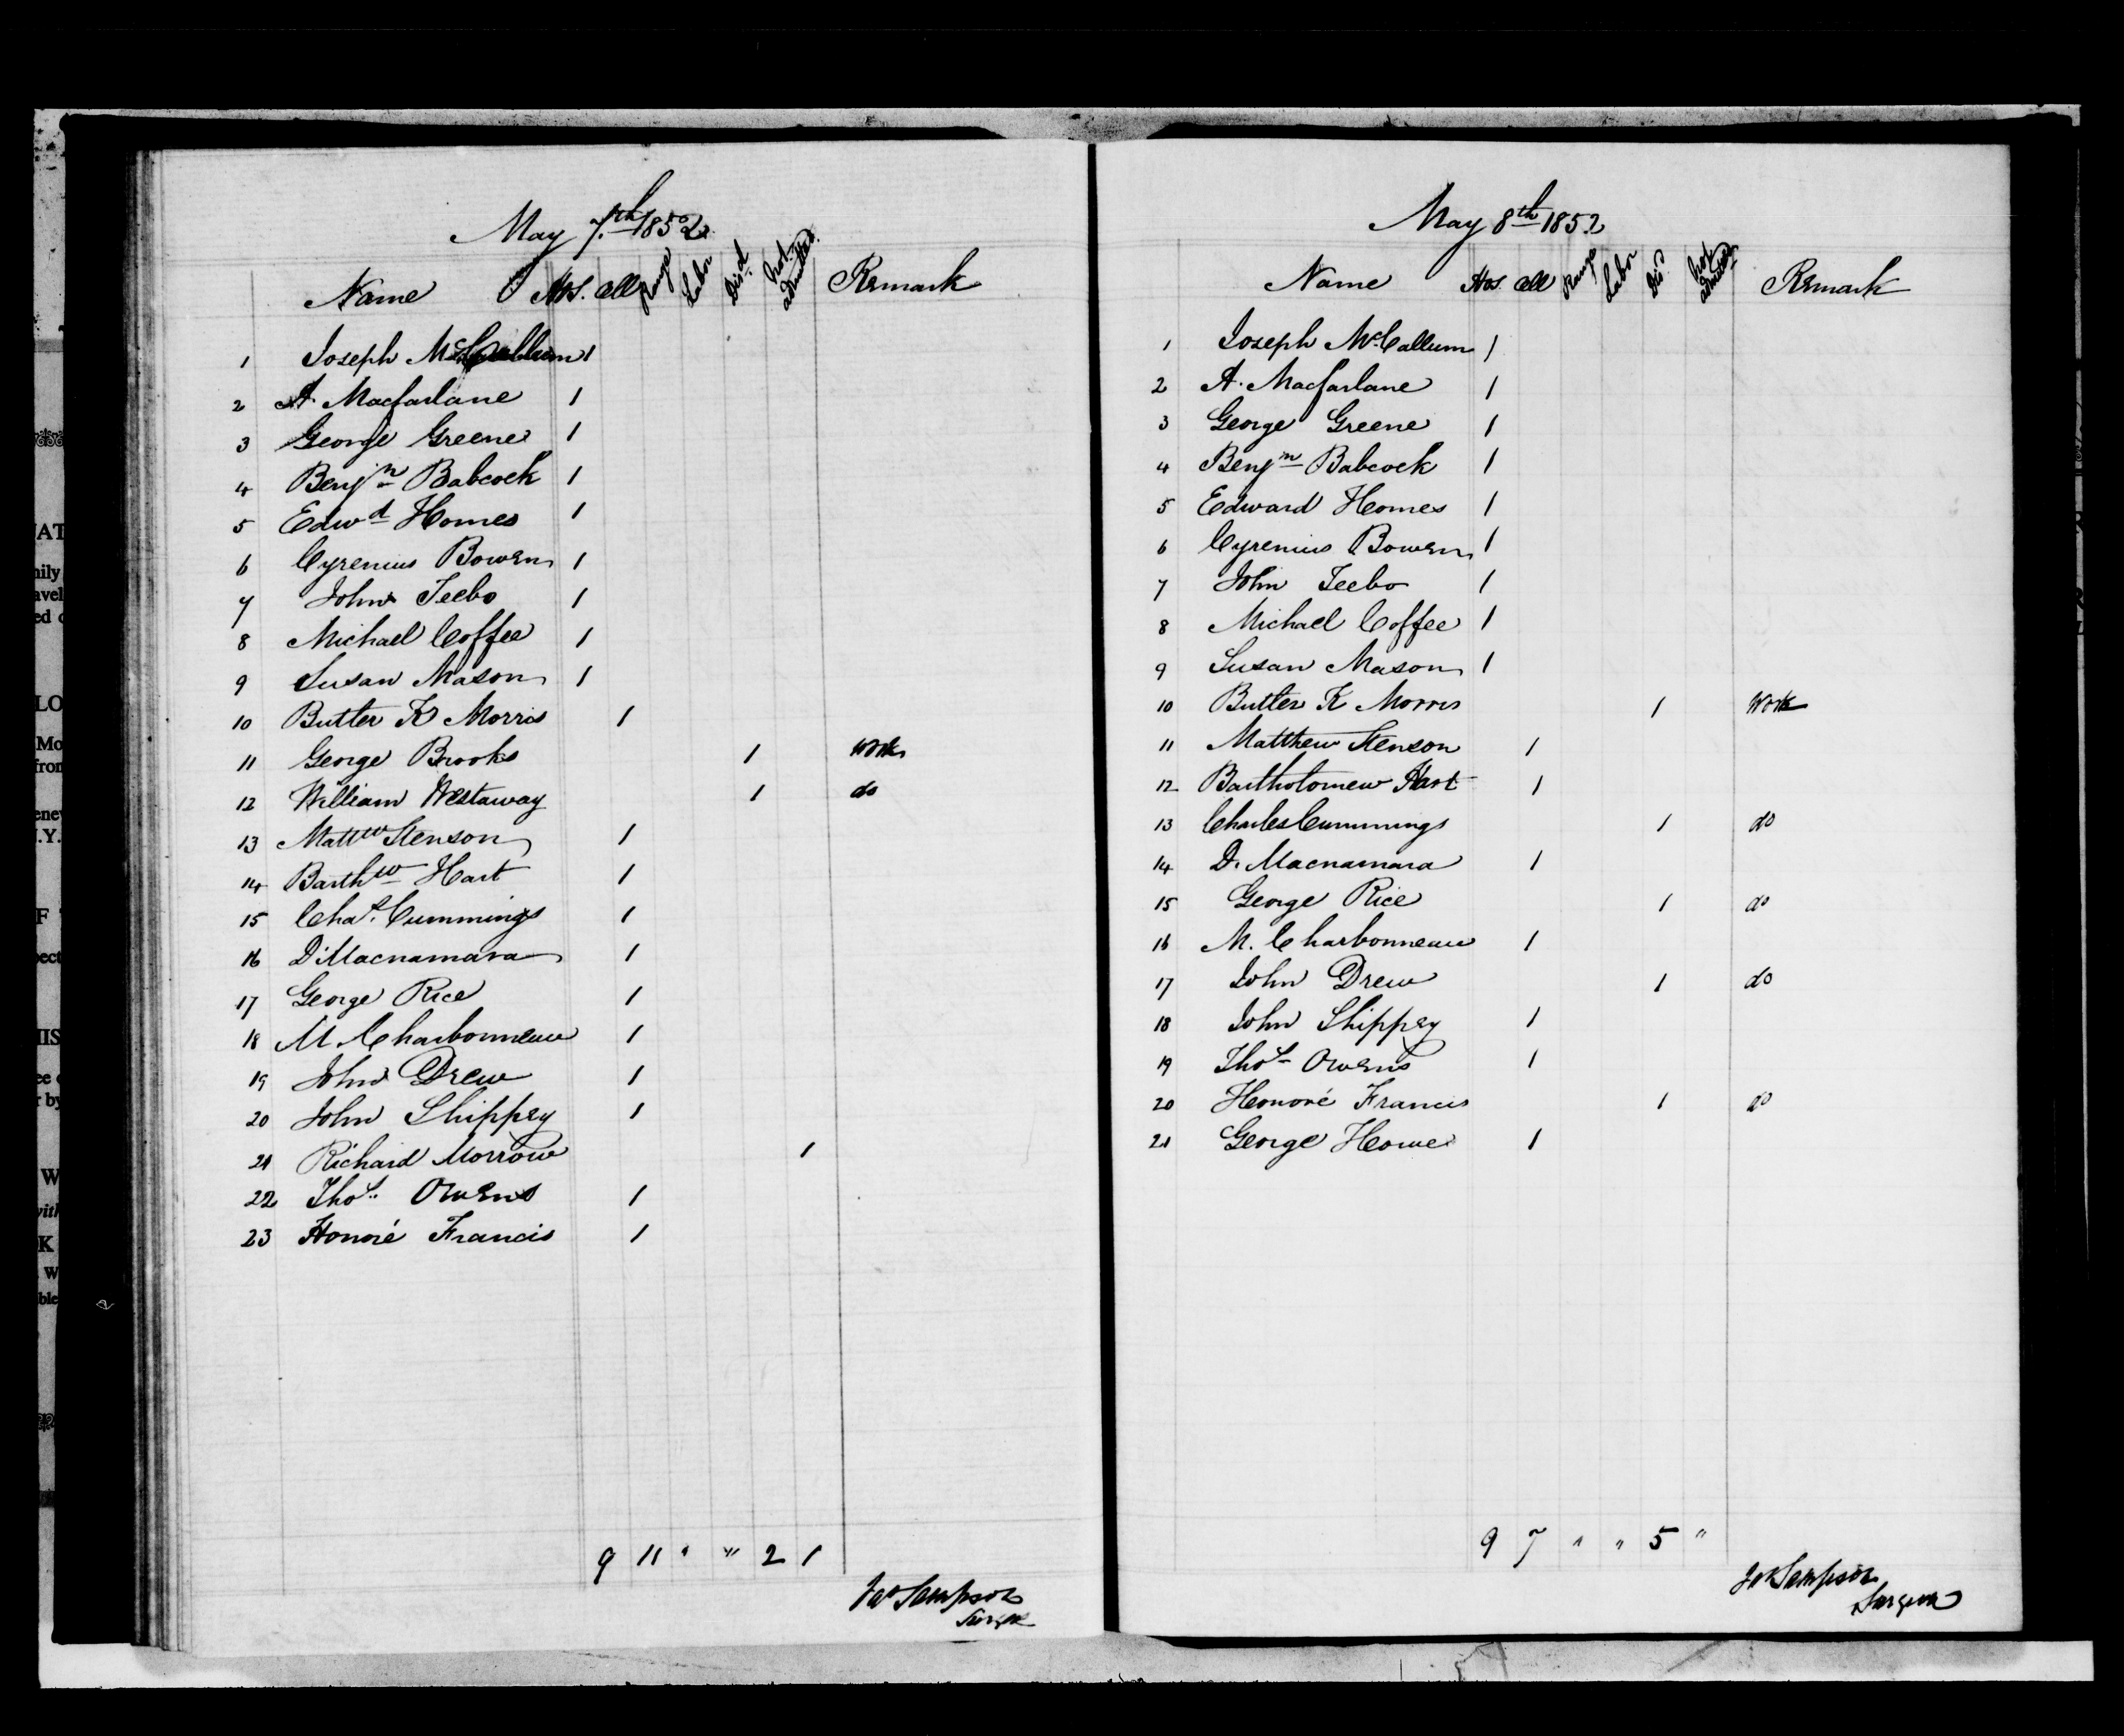 May 7th 1852
Name Hos. Cell Range Labor Disd Not admitted Remark
1 Joseph McCallum 1
2 A. Macfarlane 1
3 George Greene 1
4 Benjn Babcock 1
5 Edwd Homes 1
6 Cyrenius Bowen 1
7 John Teebo 1
8 Michael Coffee 1
9 Susan Mason 1
10 Butler K Morris 1
11 George Brooks 1 Work
12 William Westaway 1 do
13 Mattw Stenson 1
14 Barthw Hart 1
15 Chas. Cummings 1
16 D. Macnamara 1
17 George Rice 1
18 M. Charbonneau 1
19 John Drew 1
20 John Shippey 1
21 Richard Morrow 1
22 Thos. Owens 1
23 Honoré Francis 1
9 11 " " 2 1
Jas Sampson
Surgeon
May 8th 1852
Name Hos. Cell Range Labor Disd Not admitted Remark
1 Joseph McCallum 1
2 A. Macfarlane 1
3 George Greene 1
4 Benjn Babcock 1
5 Edward Homes 1
6 Cyrenius Bowen 1
7 John Teebo 1
8 Michael Coffee 1
9 Susan Mason 1
10 Butler K Morris 1 Work
11 Matthew Stenson 1
12 Bartholomew Hart 1
13 Charles Cummings 1 do
14 D. Macnamara 1
15 George Rice 1 do
16 M. Charbonneau 1
17 John Drew 1 do
18 John Shippey 1
19 Thos Owens 1
20 Honoré Francis 1 do
21 George Howe 1
9 7 " " 5 "
Jas Sampson
Surgeon